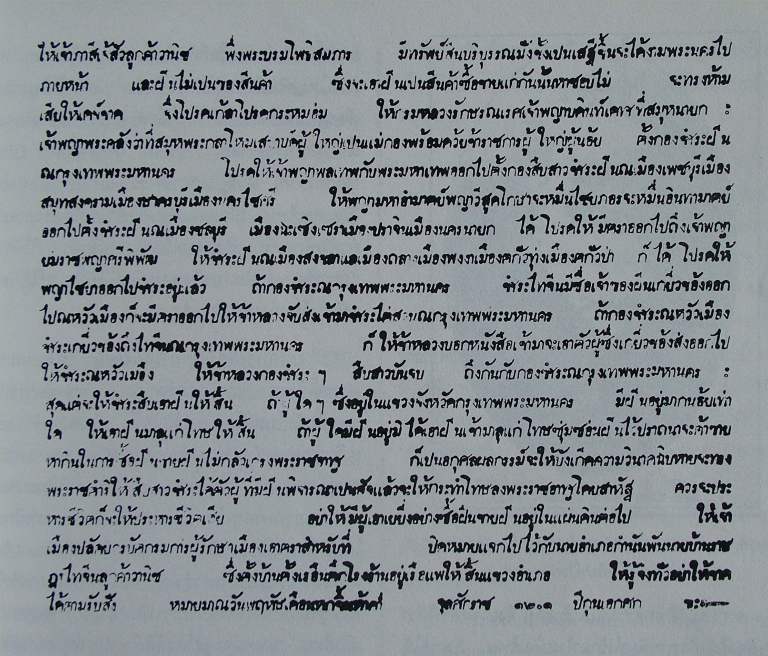 ให้เจ้าภาสีเจ้สัวลูกค้าวานิช พึ่งพระบรมโพธิสมภาร มีทรัพย์สีนบริบูรรณมั่งขั้งเปนเสฐีขึ้นจะได้งามพระนครไป
ภายหน้า และฝิ่นไม่เปนของสีนค้า ซึ่งจะเอาฝิ่นเปนสีนค้าซื้อขายแก่กันนั้นหาชอบไม่ จะทรงห้าม
เสียให้เดจ์ขาด จึ่งโปรดเกล้าโปรดกระหม่อม ให้กรมหลวงรักษรณเรศเจ้าพญาบดินท์เดชาที่สมุหนายก ะ
เจ้าพญาพระคลังว่าที่สมุหพระกลาโหมเสนาบดีผู้ใหญ่เปนแม่กองพร้อมด้วยข้าราชการผู้ใหญ่ผู้น้อย ตั้งกองชำระฝิ่น
ณกรุงเทพพระมหานคร โปรดให้เจ้าพญาพลเทพกับพระมหาเทพออกไปตั้งกองสืบสาวชำระฝิ่นณเมืองเพชบูรีเมือง
สมุทสงครามเมืองสาครบูรีเมืองนครไชศรี ให้พญามหาอำมาตย์พญาวิสูตโกษาจะหมื่นไชยภอรจะหมื่นอินทามาตย์
ออกไปตั้งชำระฝิ่นณเมืองชลบูรี เมืองฉะเชิงเซราเมืองปราจินเมืองนครนายก ได้โปรดให้มีตราออกไปถึงเจ้าพญา
ยมราชพญาศรีพิพัฒ ให้ชำระฝิ่นณเมืองสงขลาแลเมืองถลางเมืองพงงาเมืองตกัวทุ่งเมืองตกัวป่า ก็ได้โปรดให้
พญาไชยาออกไปชำระอยู่แล้ว ถ้ากองชำระณกรุงเทพพระมหานคร ชำระไทจีนมีชื่อเจ้าของฝิ่นเกี่ยวข้องออก
ไปณหัวเมืองก็จะมีตราออกไปให้ข้าหลวงจับส่งเข้ามาชำระไต่สวนณกรุงเทพพระมหานคร ถ้ากองชำระณหัวเมือง
ชำระเกี่ยวข้องถึงไทจีนณกรุงเทพพระมหานคร ก็ให้ข้าหลวงบอกหนังสือเข้ามาจะเอาตัวผู้ซึ่งเกี่ยวข้องส่งออกไป
ให้ชำระณหัวเมือง ให้ข้าหลวงกองชำระ ๆ สืบสาวบันจบ ถึงกันกับกองชำระณกรุงเทพพระมหานคร ะ
สุดแต่จะให้ชำระสืบเอาฝิ่นให้สิ้น ถ้าผู้ใด ๆ ซึ่งอยู่ในแขวงจังหวัดกรุงเทพพระมหานคร มีฝิ่นอยู่มากน้อยเท่า
ใด ให้เอาฝิ่นมาลุแก่โทษให้สิ้น ถ้าผู้ใดมีฝิ่นอยู่มิได้เอาฝิ่นเข้ามาลุแก่โทษซุ่มซ่อนฝิ่นไว้ปราถนาจะค้าขาย
หากินในการซื้อฝิ่นขายฝิ่นไม่กลัวเกรงพระราชอาญา ก็เปนอกุศลผลกรรม์จะให้บังเกิดความวินาศฉิบหายจะทรง
พระราชดำริให้สืบสาวชำระได้ตัวผู้ที่มีฝิ่นพิจารณาเปนสัจแล้วจะให้กระทำโทษลงพระราชอาญาโดยสาหัฐ ควรจะประ
หารชีวิตก็จะให้ประหารชีวิตเสีย อย่าให้มีผู้เอาเยี่ยงอย่างซื้อฝิ่นขายฝิ่นอยู่ในแผ่นดินต่อไป ให้เจ้า
เมืองปลัดยกรบัตรกรมการผู้รักษาเมืองเอาตราสำหรับที่ ปิดหมายแจกไปไว้กับนายอำเภอกำนันพันนายบ้านราษ
ฎรไทจีนลูกค้าวานิช ซึ่งตั้งบ้านตั้งเรือนตึกโรงร้านอยู่เรือแพให้สิ้นแขวงอำเภอ ให้รู้จงทั่วอย่าให้ขาด
ได้ตามรับสั่ง หมายมาณวันพฤหัษเดือนหกขึ้นห้าค่ำ จุลศักราช ๑๒๐๑ ปีกุนเอกศก ะ